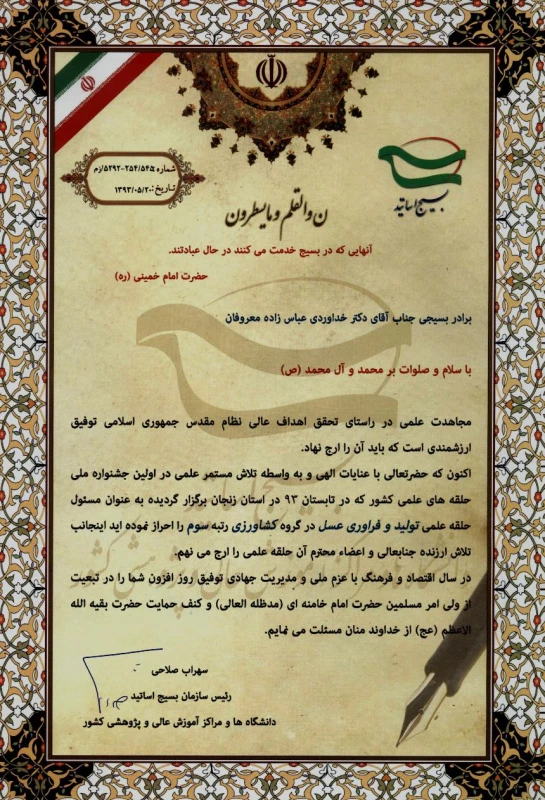 شماره ۵۲۹۲-۲۵۴/۵۴۵/زم
تاریخ: ۱۳۹۳/۰۵/۲۰
بسیج اساتید
ن والقلم و ما یسطرون
آنهایی که در بسیج خدمت می کنند در حال عبادتند.
حضرت امام خمینی (ره)
برادر بسیجی جناب آقای دکتر خداوردی عباس زاده معروفان
با سلام و صلوات بر محمد و آل محمد (ص)
مجاهدت علمی در راستای تحقق اهداف عالی نظام مقدس جمهوری اسلامی توفیق
ارزشمندی است که باید آن را ارج نهاد.
اکنون که حضرتعالی با عنایات الهی و به واسطه تلاش مستمر علمی در اولین جشنواره ملی
حلقه های علمی کشور که در تابستان ۹۳ در استان زنجان برگزار گردیده به عنوان مسئول
حلقه علمی تولید و فراوری عسل در گروه کشاورزی رتبه سوم را احراز نموده اید اینجانب
تلاش ارزنده جنابعالی و اعضاء محترم آن حلقه علمی را ارج می نهم.
در سال اقتصاد و فرهنگ با عزم ملی و مدیریت جهادی توفیق روز افزون شما را در تبعیت
از ولی امر مسلمین حضرت امام خامنه ای (مدظله العالی) و کنف حمایت حضرت بقیه الله
الاعظم (عج) از خداوند منان مسئلت می نمایم.
سهراب صلاحی
رئیس سازمان بسیج اساتید
دانشگاه ها و مراکز آموزش عالی و پژوهشی کشور